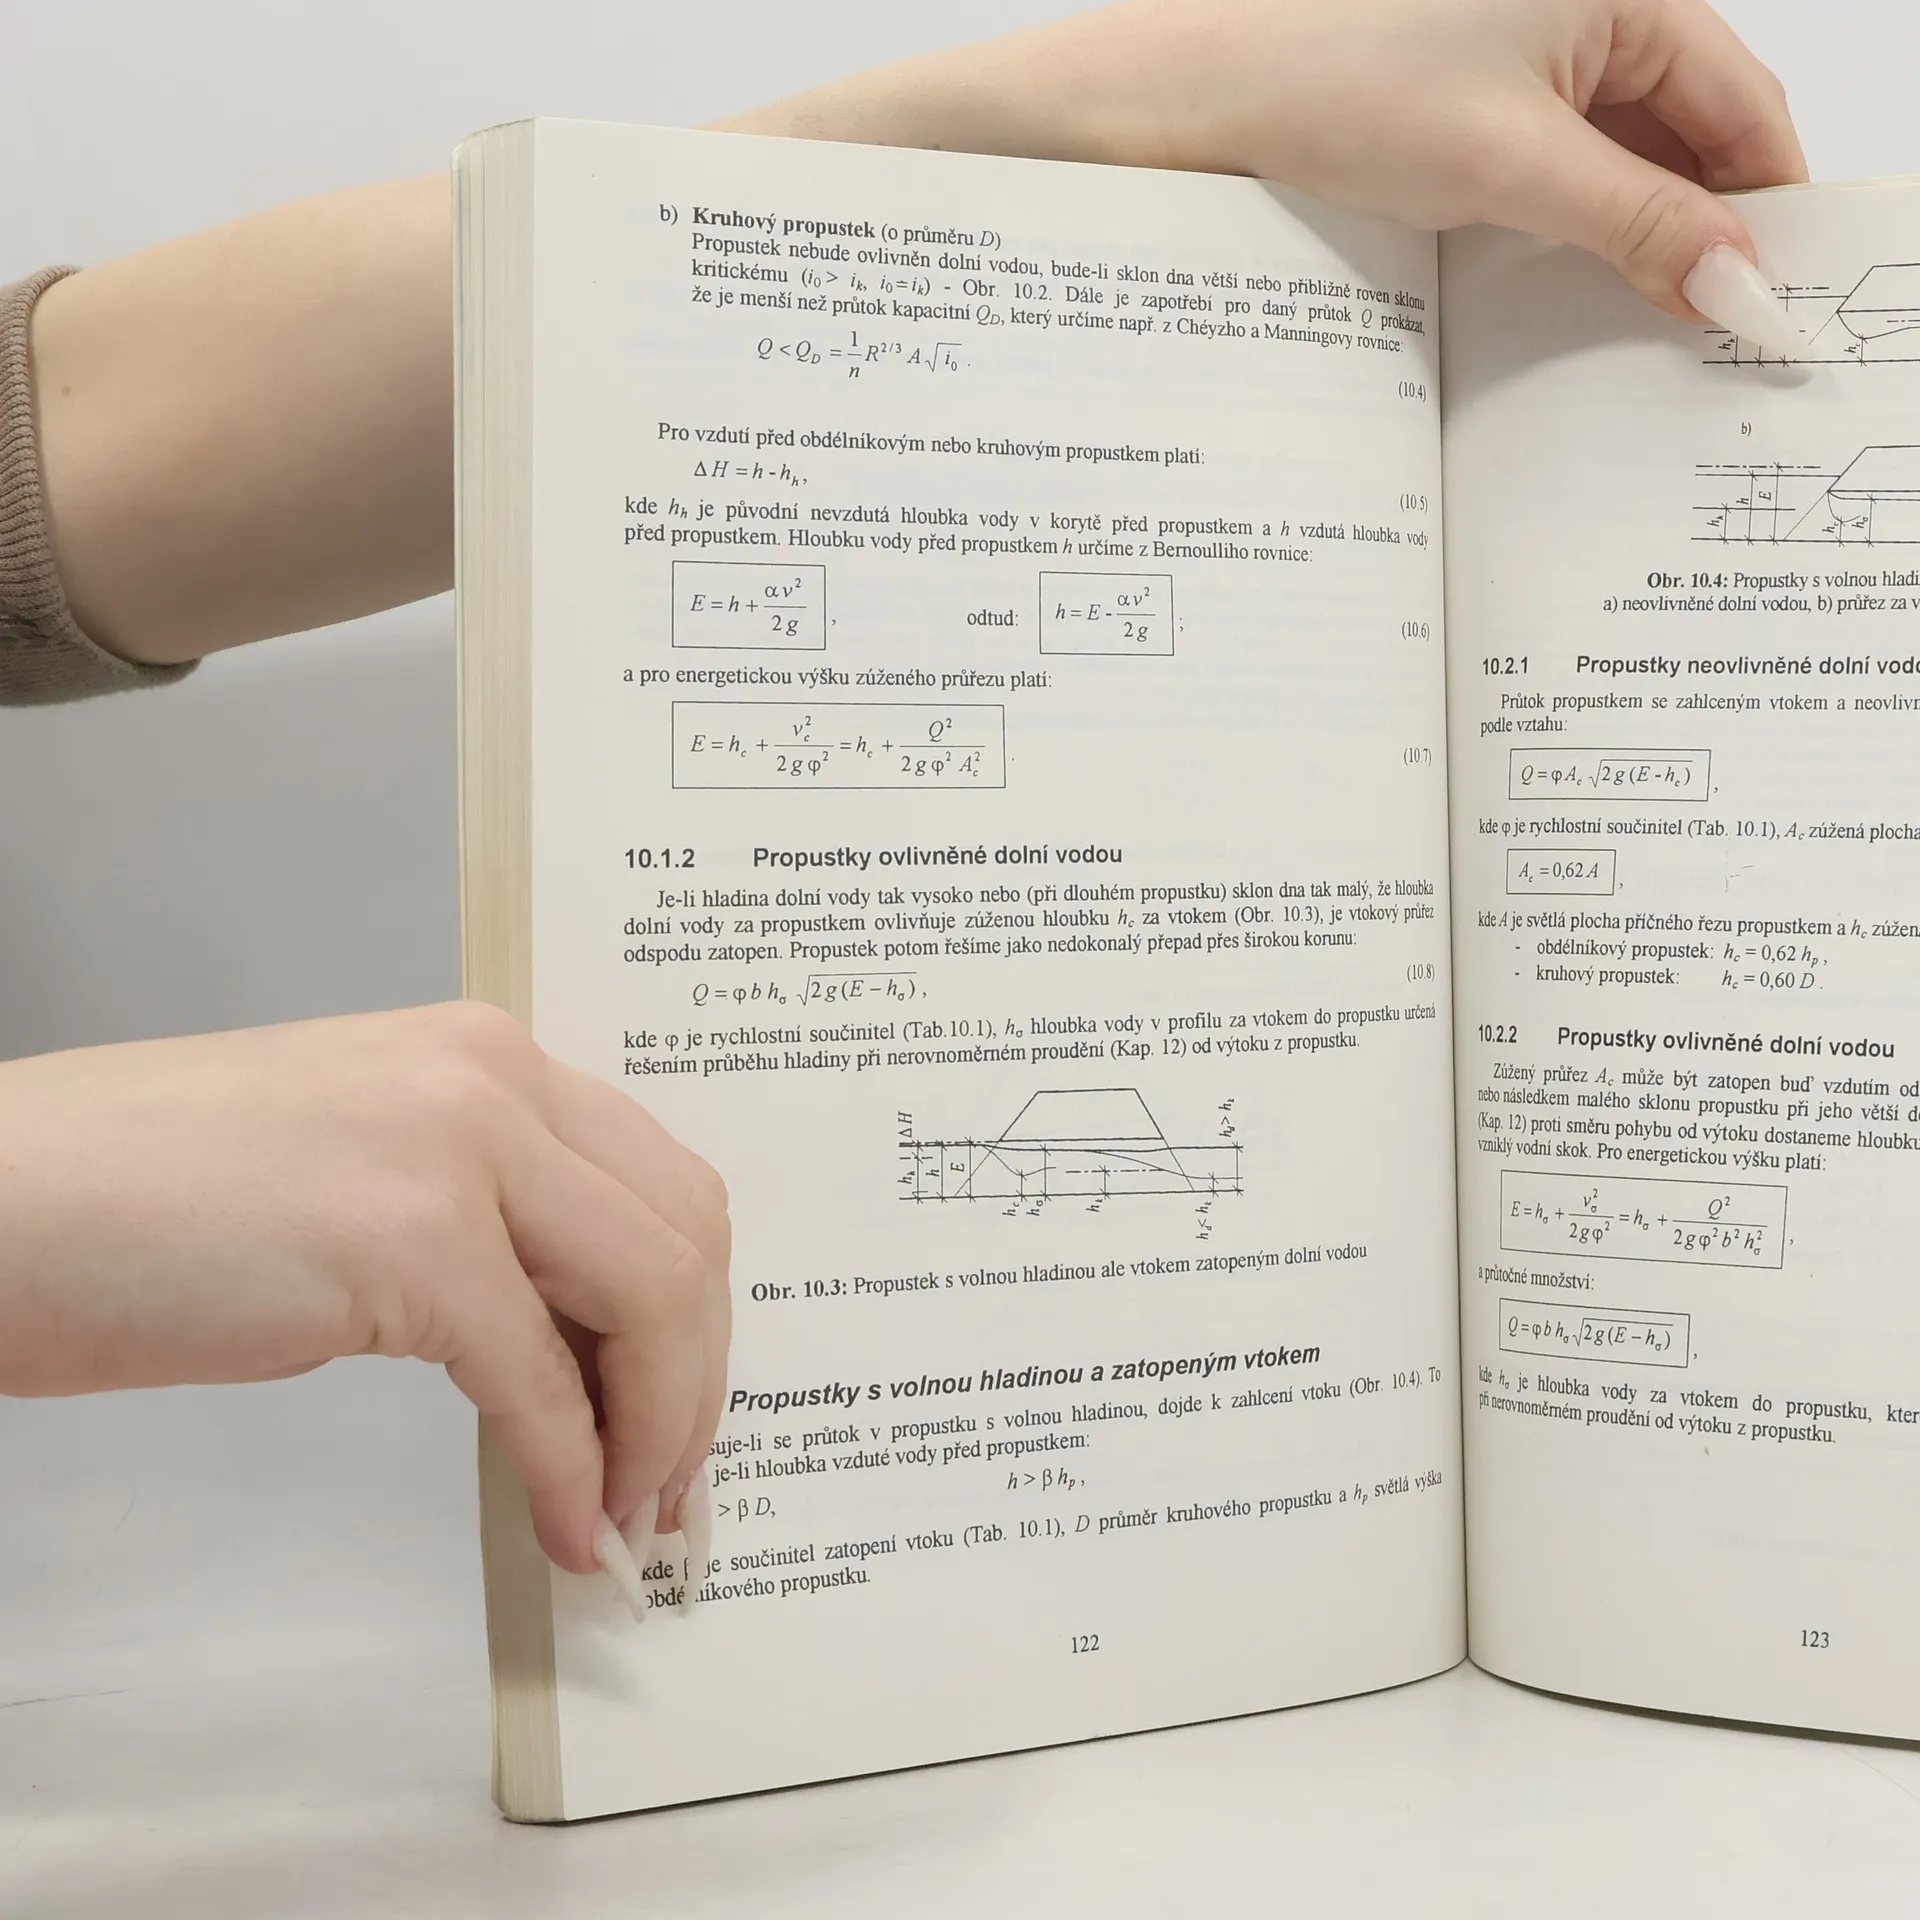 b) Kruhový propustek (o průměru D)
Propustek nebude ovlivněn dolní vodou, bude-li sklon dna větší nebo přibližně roven sklonu
kritickému (i₀ > iₖ, i₀ = iₖ) - Obr. 10.2. Dále je zapotřebí pro daný průtok Q prokázat,
že je menší než průtok kapacitní Q_D, který určíme např. z Chéyzho a Manningovy rovnice:
Q < Q_D = 1/n R^(2/3) A √i₀ .
(10.4)
Pro vzdutí před obdélníkovým nebo kruhovým propustkem platí:
Δ H = h - h_h,
(10.5)
kde h_h je původní nevzdutá hloubka vody v korytě před propustkem a h vzdutá hloubka vody
před propustkem. Hloubku vody před propustkem h určíme z Bernoulliho rovnice:
E = h + αv²/2g , odtud: h = E - αv²/2g ;
(10.6)
a pro energetickou výšku zúženého průřezu platí:
E = h_c + v_c²/2gφ² = h_c + Q²/2gφ² A_c² .
(10.7)
10.1.2 Propustky ovlivněné dolní vodou
Je-li hladina dolní vody tak vysoko nebo (při dlouhém propustku) sklon dna tak malý, že hloubka
dolní vody za propustkem ovlivňuje zúženou hloubku h_c za vtokem (Obr. 10.3), je vtokový průřez
odspodu zatopen. Propustek potom řešíme jako nedokonalý přepad přes širokou korunu:
Q = φ b h_σ √2g(E – h_σ) ,
(10.8)
kde φ je rychlostní součinitel (Tab.10.1), h_σ hloubka vody v profilu za vtokem do propustku určená
řešením průběhu hladiny při nerovnoměrném proudění (Kap. 12) od výtoku z propustku.
ΔH
h_h h E
h_c h_σ
h_d > h_k
h_d < h_k
Obr. 10.3: Propustek s volnou hladinou ale vtokem zatopeným dolní vodou
Propustky s volnou hladinou a zatopeným vtokem
suje-li se průtok v propustku s volnou hladinou, dojde k zahlcení vtoku (Obr. 10.4). To
je-li hloubka vzduté vody před propustkem:
> β D, h > β h_p ,
kde je součinitel zatopení vtoku (Tab. 10.1), D průměr kruhového propustku a h_p světlá výška
obdé níkového propustku.
122
h_h h_c
b)
h_h h E h_c h_σ
Obr. 10.4: Propustky s volnou hladi
a) neovlivněné dolní vodou, b) průřez za v
10.2.1 Propustky neovlivněné dolní vodo
Průtok propustkem se zahlceným vtokem a neovlivn
podle vztahu:
Q = φ A_c √2g(E - h_c) ,
kde φ je rychlostní součinitel (Tab. 10.1), A_c zúžená plocha
A_c = 0,62 A ,
kde A je světlá plocha příčného řezu propustkem a h_c zúžen
- obdélníkový propustek: h_c = 0,62 h_p ,
- kruhový propustek: h_c = 0,60 D .
10.2.2 Propustky ovlivněné dolní vodou
Zúžený průřez A_c může být zatopen buď vzdutím od
nebo následkem malého sklonu propustku při jeho větší d
(Kap. 12) proti směru pohybu od výtoku dostaneme hloubku
vzniklý vodní skok. Pro energetickou výšku platí:
E = h_σ + v_σ²/2gφ² = h_σ + Q²/2gφ² b² h_σ² ,
a průtočné množství:
Q = φ b h_σ √2g(E – h_σ) ,
kde h_σ je hloubka vody za vtokem do propustku, kter
při nerovnoměrném proudění od výtoku z propustku.
123